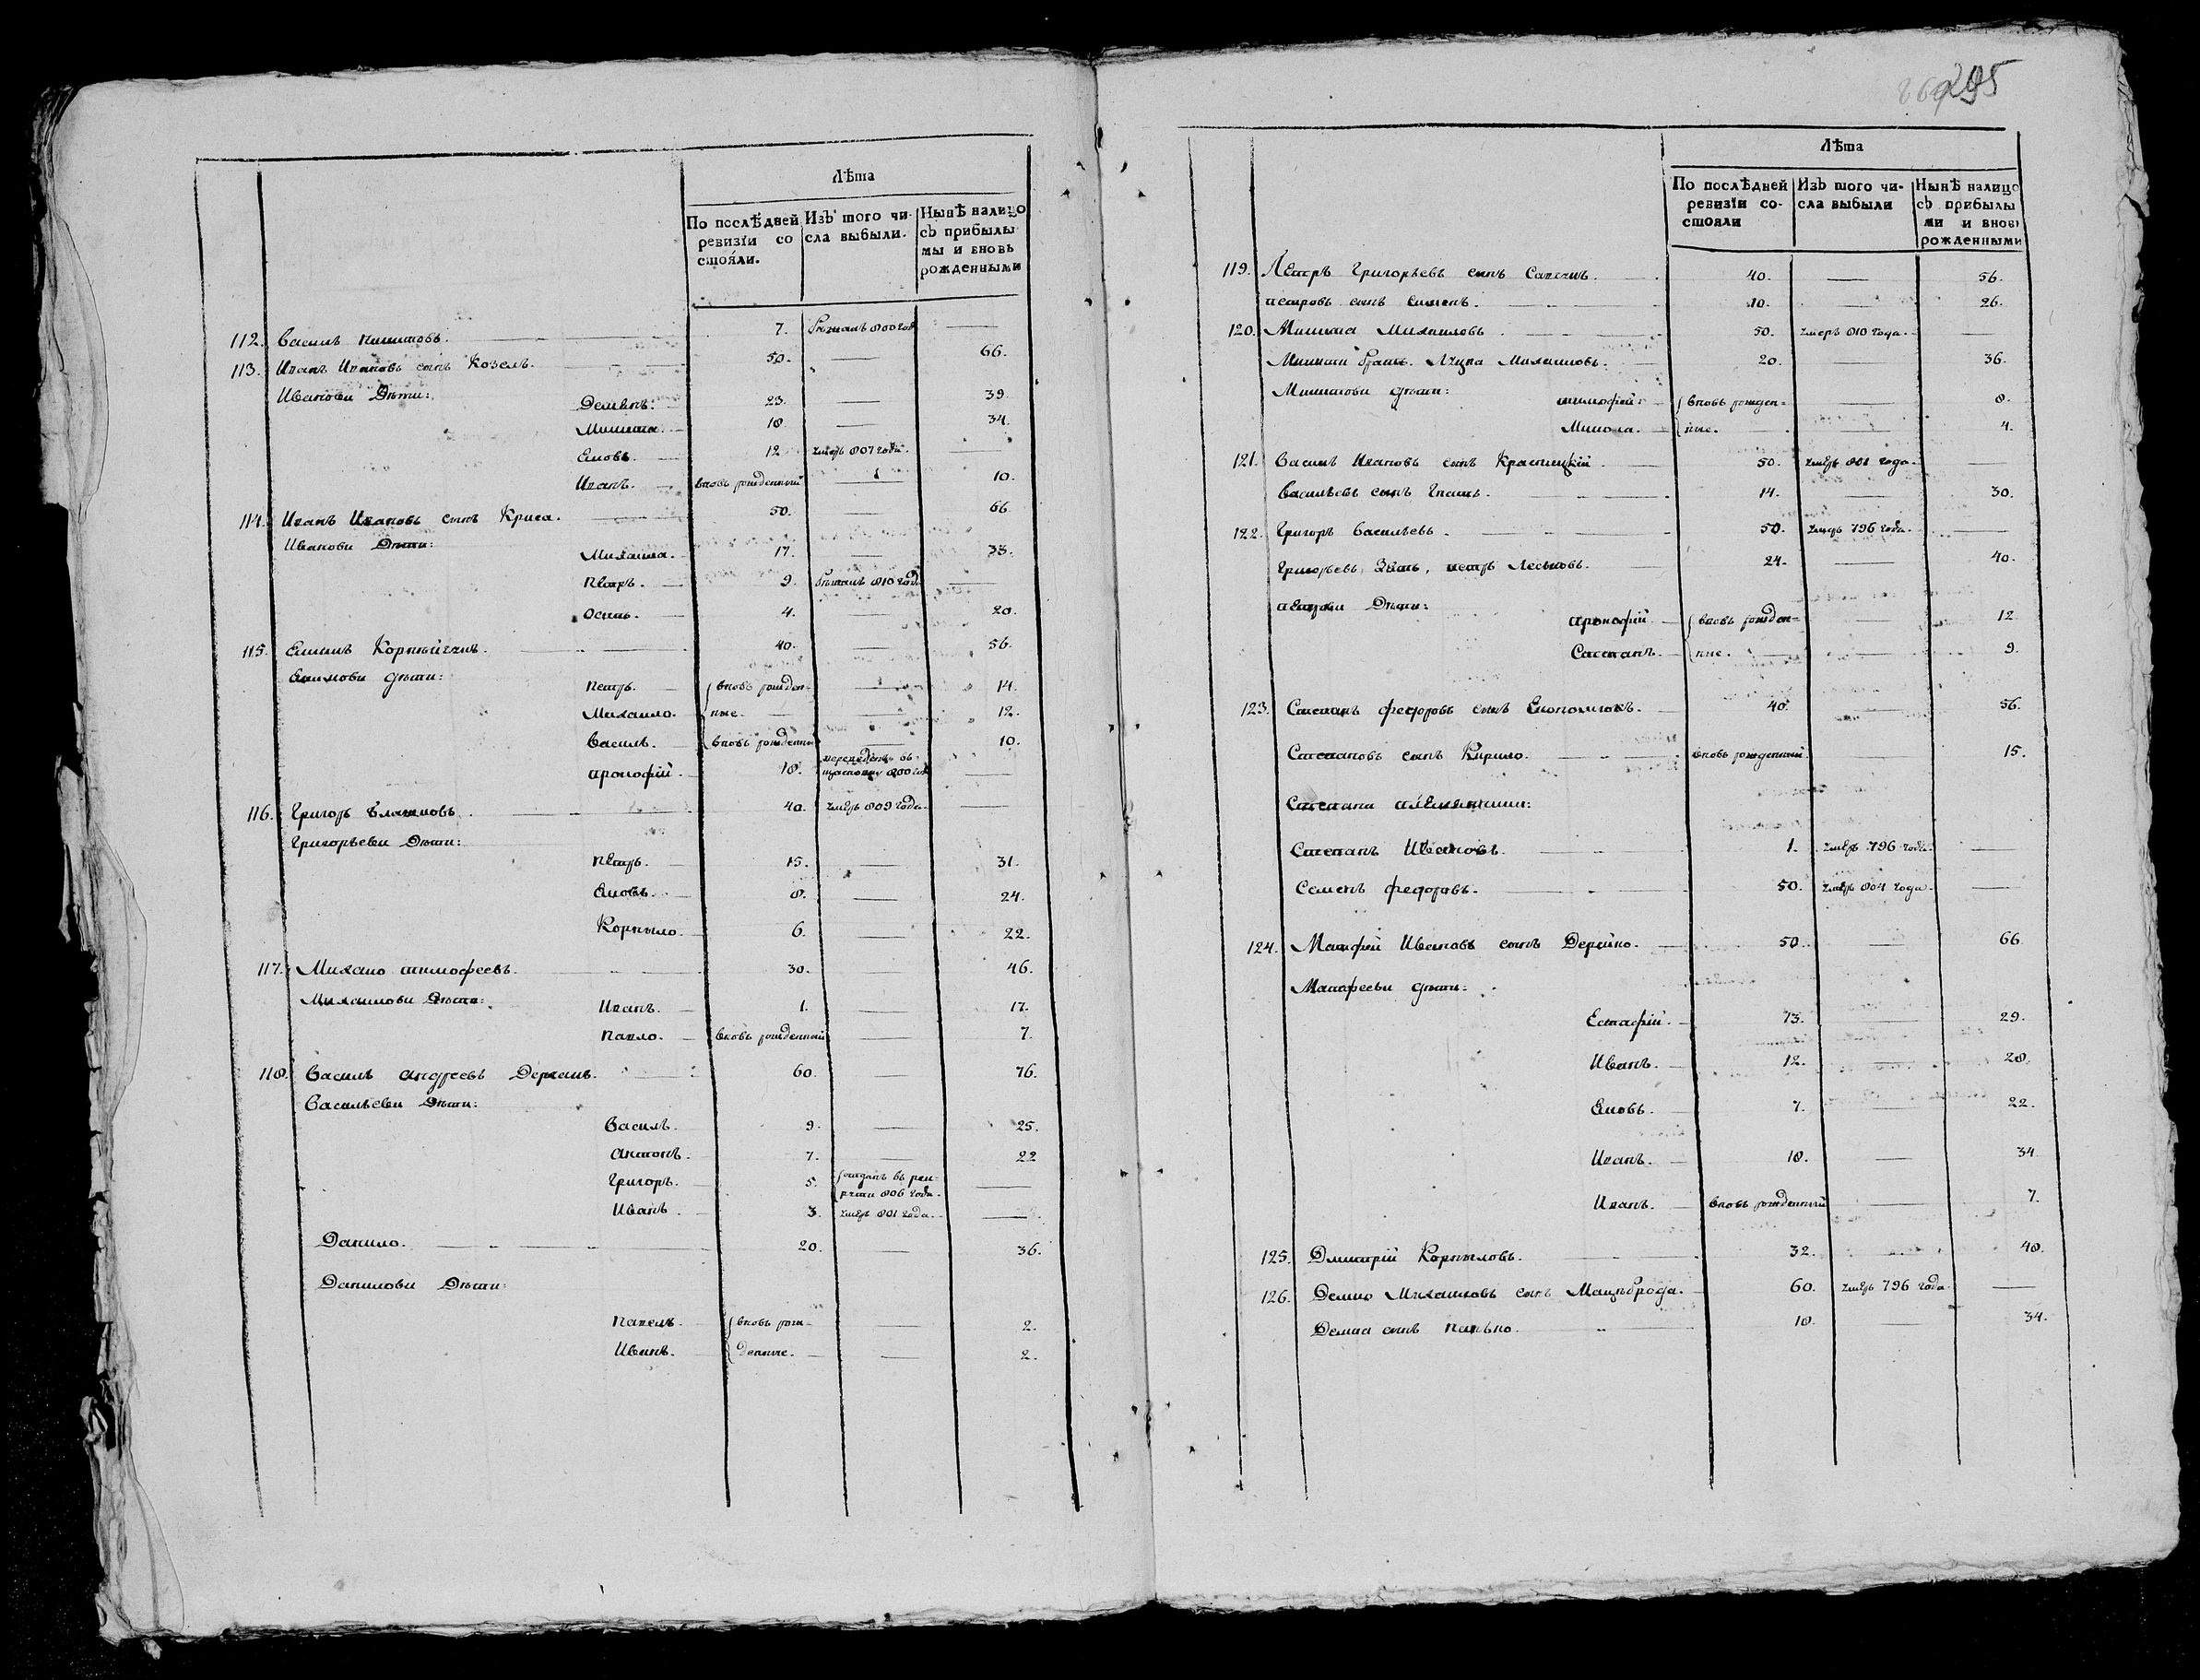 295
Лѣта
По послѣдней ревизїи со стояли.
Изъ того чи- сла выбыли.
Нынѣ налицо съ прибылы мы и вновь рожденными
112. Василь Никитовъ. 7. бѣжалъ 800 год —
113. Иванъ Ивановъ сынъ Козелъ. 50. — 66.
Иванови Дѣти:
Демянъ. 23. — 39.
Микита. 18. — 34.
Яковъ. 12 умеръ 807 года. —
Иванъ. вновь рожденный — 10.
114. Иванъ Ивановъ сынъ Криса. 50. — 66
Иванови Дѣти:
Михайла. 17. — 33.
Петръ. 9. бѣжалъ 810 года —
Осипъ. 4. — 20.
115. Якимъ Корнѣйчикъ. 40. — 56.
Якимови дѣти:
Петръ. вновь рожден- — 14.
Михайло. ные. — 12.
Василь. вновь рожденны — 10.
прокофій. 18. 800 —
116. Григоръ Влашковъ. 40. умеръ 809 года. —
Григорьеви Дѣти:
Петръ. 15. — 31.
Яковъ. 8. — 24.
Корныло. 6. — 22.
117. Михайло тимофеевъ. 30. — 46.
Михайлови Дѣти:
Иванъ. 1. — 17.
Павло. вновь рожденный — 7.
118. Василь андреевъ Деркачъ. 60. — 76.
Васильеви Дѣти:
Василь. 9. — 25.
антонъ. 7. — 22
Григоръ. 5. отданъ въ рек- —
руты 806 года.
Иванъ. 3. умеръ 801 года. —
Данило. 20. — 36.
Данилови Дѣти:
Павелъ. вновь рож- — 2.
Иванъ. денные. — 2.
Лѣта
По послѣдней ревизїи со- стояли
Изъ того чи- сла выбыли
Нынѣ налицо съ прибылы ми и вновь рожденными
119. Петръ Григорьевъ сынъ 40. — 56.
петровъ сынъ Семенъ. 10. — 26.
120. Микита Михайловъ. 50. умеръ 810 года. —
Микити братъ. Луцка Михайловъ. 20. — 36.
Микитови дѣти:
тимофей: вновь рожден- — 8.
Микола. ные. — 4.
121. Василь Ивановъ сынъ Красницкій. 50. умеръ 801 года. —
Васильевъ сынъ Гнатъ. 14. — 30.
122. Григоръ Васильевъ. 50. умеръ 796 года. —
Григорьевъ Зять, петръ Леськовъ. 24. — 40.
петрови Дѣти:
прокофій. вновь рожден- — 12
Степанъ. ные. — 9.
123. Степанъ федоровъ сынъ Економюкъ. 40. — 56.
Степановъ сынъ Кирило. вновь рожденный. 15.
Степана племянники:
Степанъ Ивановъ. 1. умеръ 796 года. —
Семенъ федоровъ. 50. умеръ 804 года. —
124. Матфей Ивановъ сынъ Дерейко. 50. — 66
Матфееви дѣти:
Естафій. 13. — 29.
Иванъ. 12. — 28.
Яковъ. 7. — 22.
Иванъ. 18. — 34
Иванъ. вновь рожденный — 7.
125. Дмитрій Корниловъ. 32. — 48.
126. Демко Михайловъ сынъ Мацеброда. 60. умеръ 796 года. —
Демка сынъ Панько. 18. — 34.